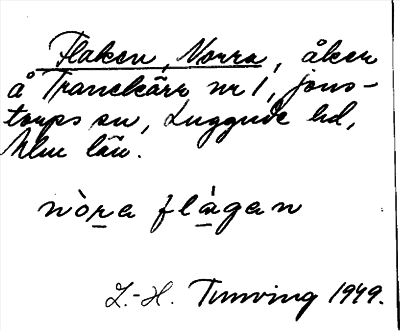 Flaken, Norra, åker
å Tranekärr nr 1, Jons-
torps sn, Luggude hd,
Mlm län.
nòra flågan
L.-H. Tunving 1949.